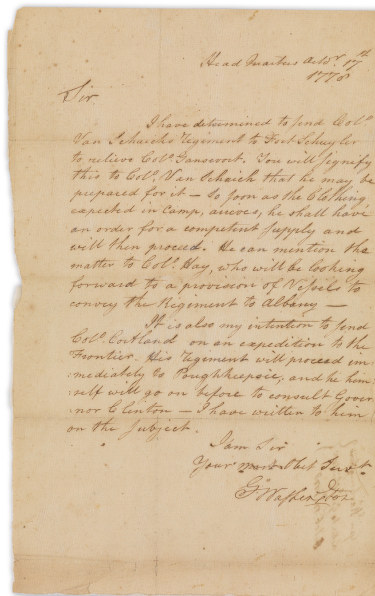 Head Quarters Octobr. 17th
1778
Sir
I have determined to send Colo.
Van Schaick's Regiment to Fort Schuyler
to relieve Colo. Gansevoort. You will signify
this to Colo. Van Schaick that he may be
prepared for it — So soon as the Cloathing
expected in Camp, arrives, he shall have
an order for a competent supply and
will then proceed. He can mention the
matter to Colo. Hay, who will be looking
forward to a provision of Vessels to
convey the Regiment to Albany —
It is also my intention to send
Colo. Cortland on an expedition to the
Frontier. His Regiment will proceed im-
-mediately to Poughkeepsie, and he him-
-self will go on before to consult Gover-
-nor Clinton — I have written to him
on the subject.
I am Sir
Your most Obet Servt
Go Washington